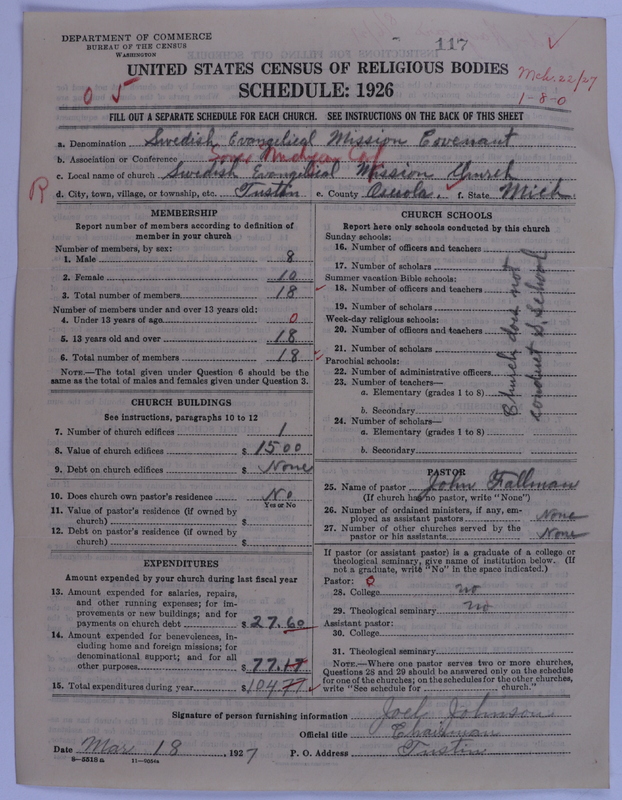 DEPARTMENT OF COMMERCE
BUREAU OF THE CENSUS
WASHINGTON
117
UNITED STATES CENSUS OF RELIGIOUS BODIES
Mch. 22/27
SCHEDULE: 1926
0 5
1-8-0
FILL OUT A SEPARATE SCHEDULE FOR EACH CHURCH. SEE INSTRUCTIONS ON THE BACK OF THIS SHEET
a. Denomination Swedish Evangelical Mission Covenant
b. Association or Conference
c. Local name of church Swedish Evangelical Mission Church
R
d. City, town, village, or township, etc. Tustin e. County Osceola f. State Mich
MEMBERSHIP
Report number of members according to definition of member in your church
Number of members, by sex:
1. Male 8
2. Female 10
3. Total number of members 18
Number of members under and over 13 years old:
4. Under 13 years of age 0
5. 13 years old and over 18
6. Total number of members 18
NOTE.—The total given under Question 6 should be the
same as the total of males and females given under Question 3.
CHURCH BUILDINGS
See instructions, paragraphs 10 to 12
7. Number of church edifices 1
8. Value of church edifices $ 1500
9. Debt on church edifices $ None
10. Does church own pastor's residence No
Yes or No
11. Value of pastor's residence (if owned by
church) $
12. Debt on pastor's residence (if owned by
church) $
EXPENDITURES
Amount expended by your church during last fiscal year
13. Amount expended for salaries, repairs,
and other running expenses; for im-
provements or new buildings; and for
payments on church debt $ 27.60
14. Amount expended for benevolences, in-
cluding home and foreign missions; for
denominational support; and for all
other purposes $ 77.17
15. Total expenditures during year $ 104.77
CHURCH SCHOOLS
Report here only schools conducted by this church
Sunday schools:
16. Number of officers and teachers
17. Number of scholars
Summer vacation Bible schools:
18. Number of officers and teachers
19. Number of scholars
Week-day religious schools:
20. Number of officers and teachers
21. Number of scholars
Parochial schools:
22. Number of administrative officers
23. Number of teachers—
a. Elementary (grades 1 to 8)
b. Secondary
24. Number of scholars—
a. Elementary (grades 1 to 8)
b. Secondary
Church does not
conduct S. School
PASTOR
25. Name of pastor John Fallman
(If church has no pastor, write "None")
26. Number of ordained ministers, if any, em-
ployed as assistant pastors None
27. Number of other churches served by the
pastor or his assistants None
If pastor (or assistant pastor) is a graduate of a college or
theological seminary, give name of institution below. (If
not a graduate, write "No" in the space indicated.)
Pastor: 0
28. College no
29. Theological seminary no
Assistant pastor:
30. College
31. Theological seminary
NOTE.—Where one pastor serves two or more churches,
Questions 28 and 29 should be answered only on the schedule
for one of the churches; on the schedules for the other churches,
write "See schedule for church."
Signature of person furnishing information Joel Johnson
Official title Chairman
Date Mar 18, 1927 P. O. Address Tustin
8—5518a 11—9054a